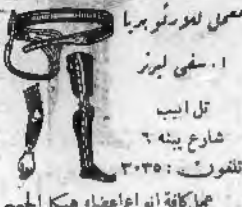 معمل للاورثوبديا
ا. سفي ليرنر
تل ابيب
شارع يبنه ٦
تلفون: ٣٠٣٥
عمل كافة انواع اعضاء هيكل الجسم